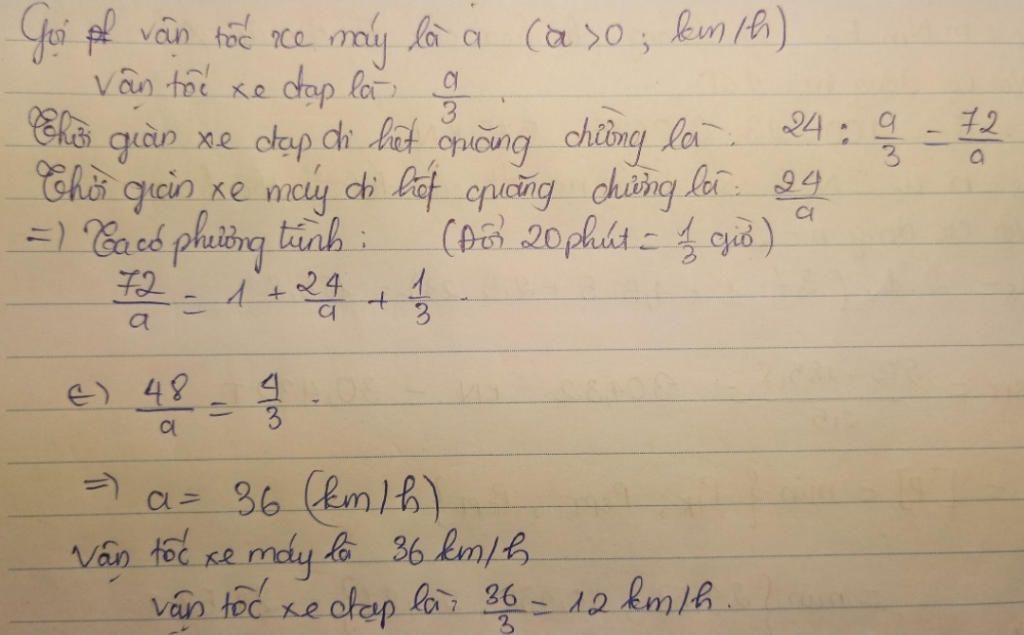 Gọi vận tốc xe máy là a (a > 0 ; km/h)
Vận tốc xe đạp là: a/3.
Thời gian xe đạp đi hết quãng đường là: 24 : a/3 = 72/a
Thời gian xe máy đi hết quãng đường là: 24/a
=> Ta có phương trình: (Đổi 20 phút = 1/3 giờ)
72/a = 1 + 24/a + 1/3.
<=> 48/a = 4/3.
=> a = 36 (km/h)
Vận tốc xe máy là 36 km/h
vận tốc xe đạp là: 36/3 = 12 km/h.